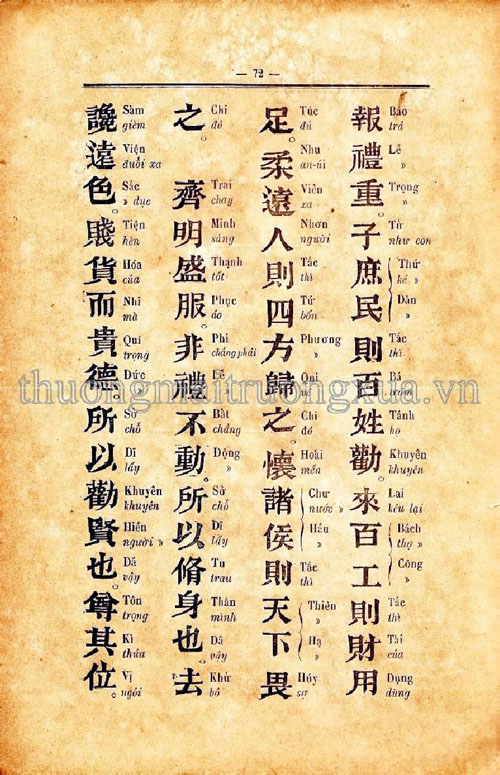 — 72 —
報禮重。子庶民則百姓勸。來百工則財用
Báo
trả
Lễ
»
Trọng
»
Tử
như con
Thứ
kẻ »
Dân
»
Tắc
thì
Bá
trăm
Tánh
họ
Khuyến
khuyên
Lai
kêu lại
Bách
thợ »
Công
»
Tắc
thì
Tài
của
Dụng
dùng
足。柔遠人則四方歸之。懷諸侯則天下畏
Túc
đủ
Nhu
an-ủi
Viễn
xa
Nhơn
người
Tắc
thì
Tứ
bốn
Phương
»
Qui
về
Chi
đó
Hoài
mến
Chư
nước »
Hầu
»
Tắc
thì
Thiên
»
Hạ
»
Húy
sợ
之。齊明盛服。非禮不動。所以脩身也。去
Chi
đó
Trai
chay
Minh
sáng
Thạnh
tốt
Phục
áo
Phi
chẳng phải
Lễ
»
Bất
chẳng
Động
»
Sở
chỗ
Dĩ
lấy
Tu
trau
Thân
mình
Dã
vậy
Khứ
bỏ
讒遠色。賤貨而貴德。所以勸賢也。尊其位。
Sàm
gièm
Viện
đuổi xa
Sắc
» dục
Tiện
hèn
Hóa
của
Nhi
mà
Quí
trọng
Đức
»
Sở
chỗ
Dĩ
lấy
Khuyên
khuyên
Hiền
người »
Dã
vậy
Tôn
trọng
Kì
thửa
Vị
ngôi
thuongmaitruongxua.vn